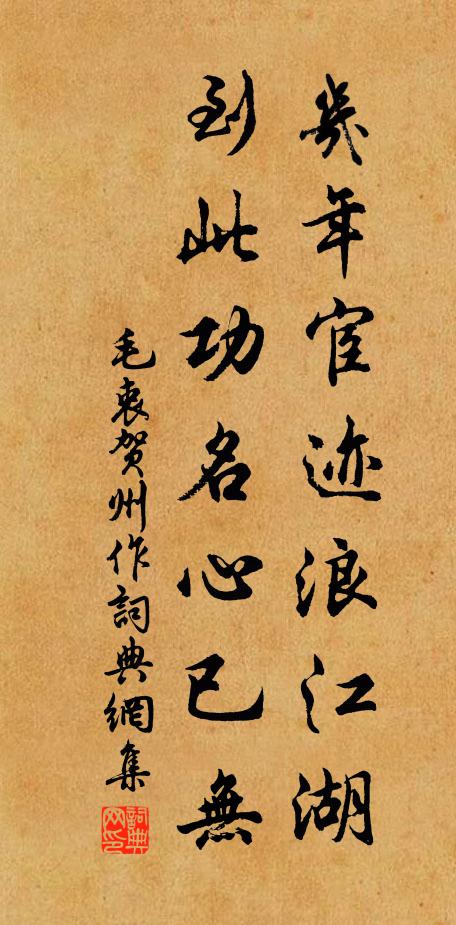 幾年宦迹浪江湖
到此功名心已無
毛衷賀州作詞典網集
詞典网印